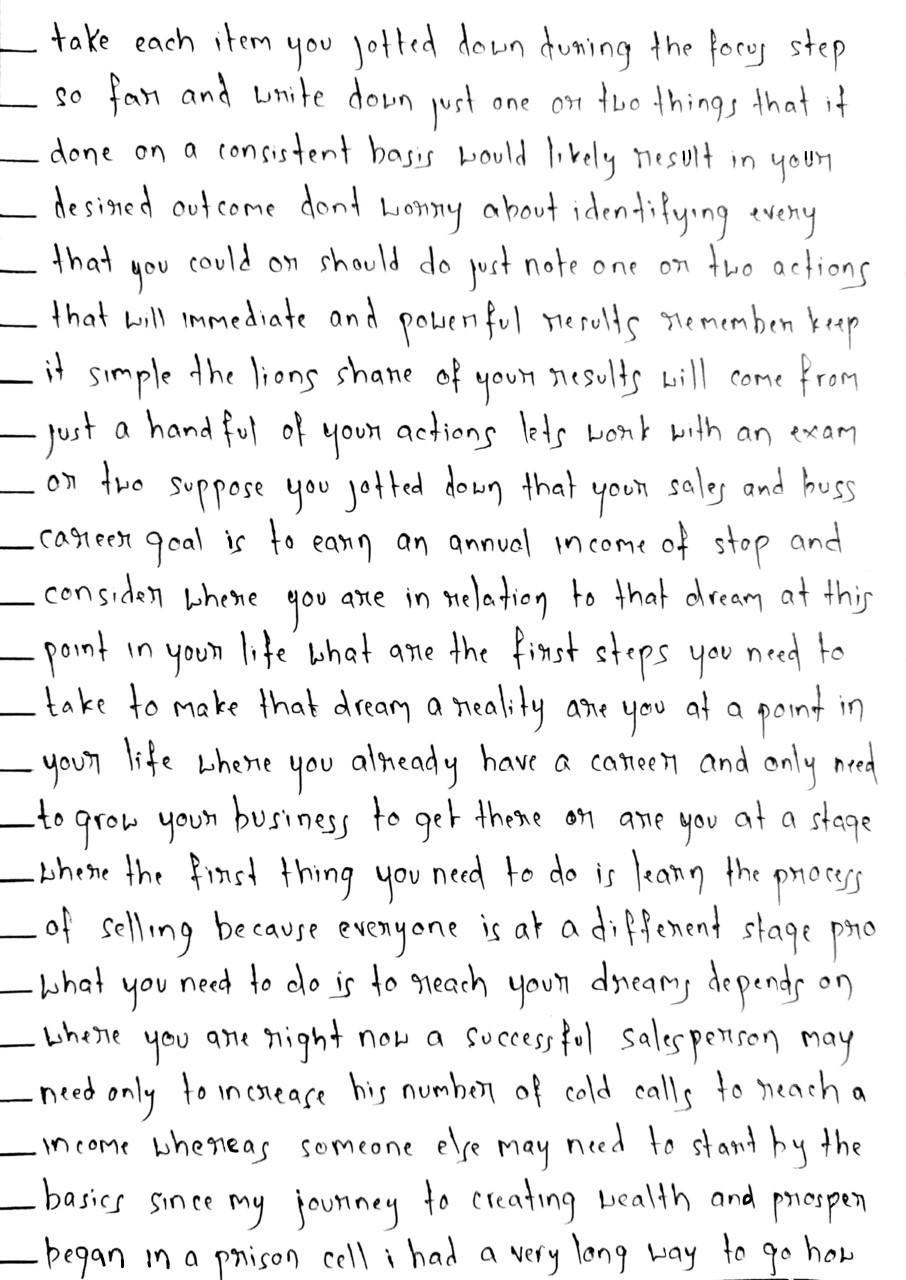 take each item you jotted down during the focus step
so far and write down just one or two things that if
done on a consistent basis would likely result in your
desired outcome dont worry about identifying every
that you could or should do just note one or two actions
that will immediate and powerful results remember keep
it simple the lions share of your results will come from
just a handful of your actions lets work with an exam
or two suppose you jotted down that your sales and buss
career goal is to earn an annual income of stop and
consider where you are in relation to that dream at this
point in your life what are the first steps you need to
take to make that dream a reality are you at a point in
your life where you already have a career and only need
to grow your business to get there or are you at a stage
where the first thing you need to do is learn the process
of selling because everyone is at a different stage pro
what you need to do is to reach your dreams depends on
where you are right now a successful salesperson may
need only to increase his number of cold calls to reach a
income whereas someone else may need to start by the
basics since my journey to creating wealth and prosper
began in a prison cell i had a very long way to go how